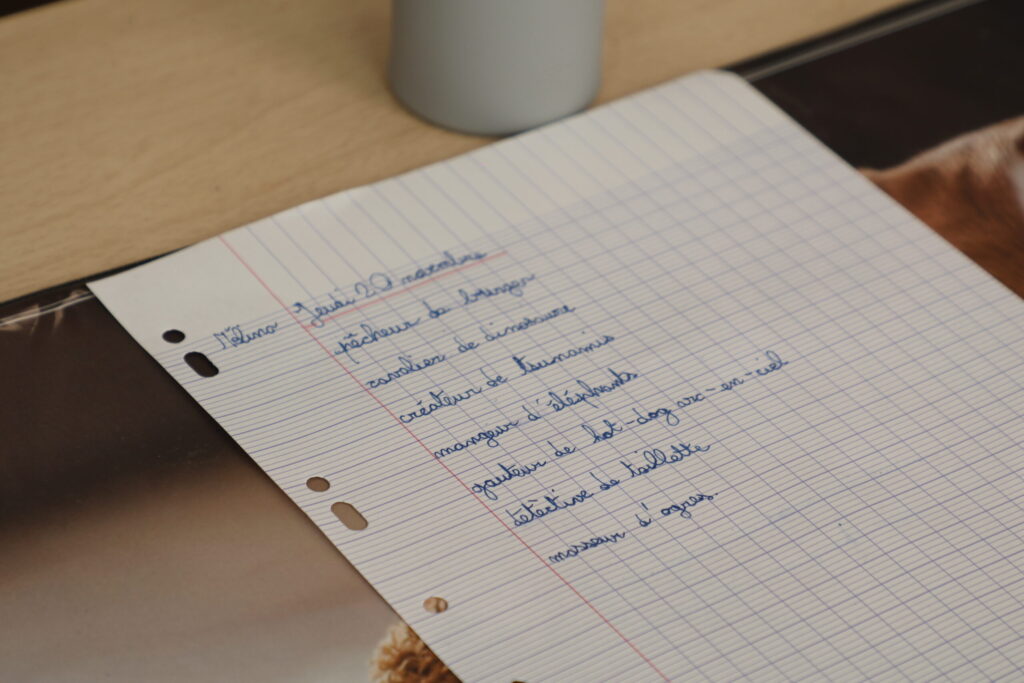 Jeudi 20 novembre
pêcheur de
cavalier de dinosaure
créateur de tsunamis
mangeur d'éléphants
gouteur de hot-dog arc-en-ciel
détective de toillette
masseur d'ogres.